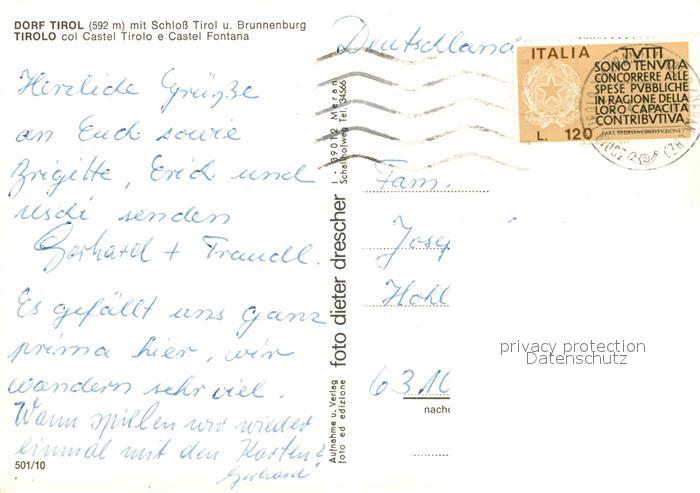 DORF TIROL (592 m) mit Schloß Tirol u. Brunnenburg
TIROLO col Castel Tirolo e Castel Fontana
Herzliche Grüße
an Euch sowie
Brigitte, Erich und
Uschi senden
Gerhard + Traudl.
Es gefällt uns ganz
prima hier, wir
wandern sehr viel.
Wann spielen wir wieder
einmal mit den Karten?
Gerhard
501/10
Aufnahme u. Verlag
foto ed edizione
foto dieter drescher
I - 39012 Meran
Schafferweg Tel. 34566
Deutschland
ITALIA
L. 120
TVTTI
SONO TENVTI A
CONCORRERE ALLE
SPESE PVBBLICHE
IN RAGIONE DELLA
LORO CAPACITÀ
CONTRIBVTIVA
(ART. 53 DELLA COSTITVZIONE)
Fam.
Josef
Hohl
6310
nache
privacy protection
Datenschutz